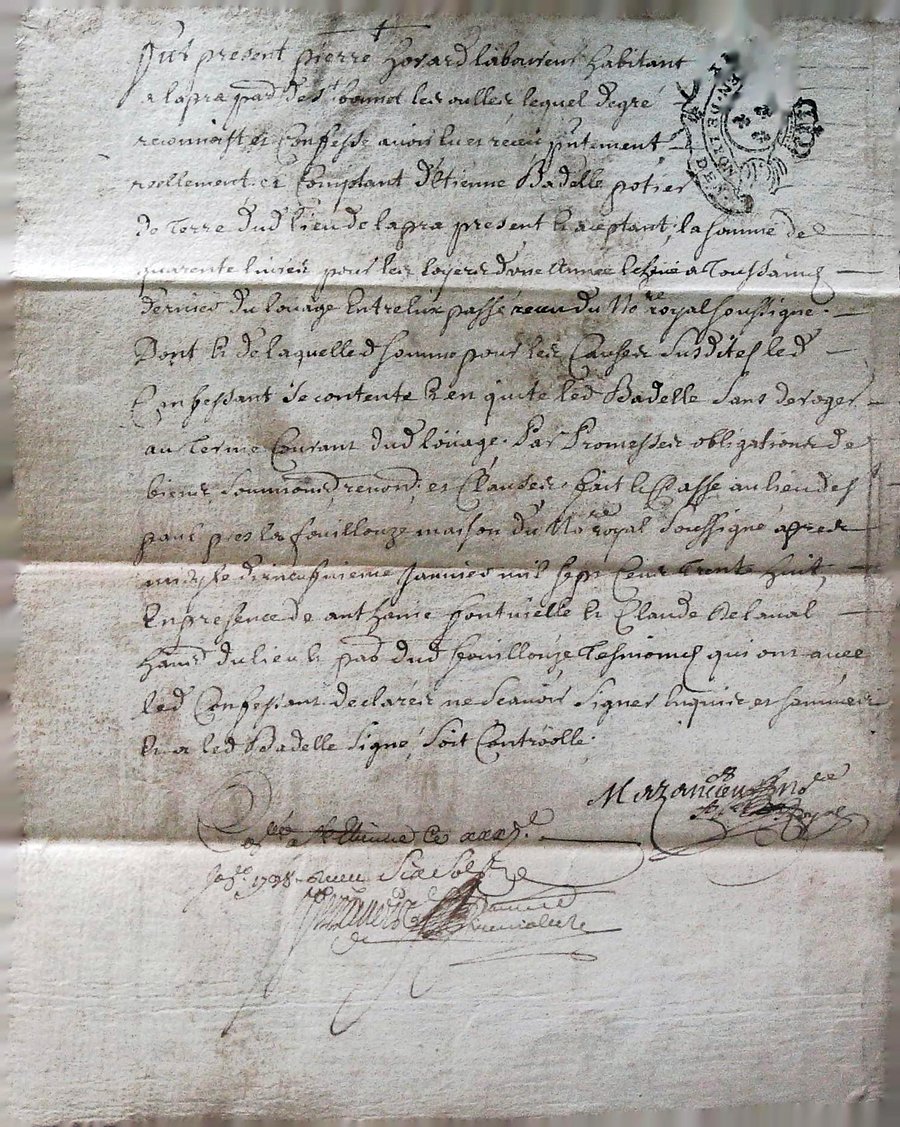 Fut present pierre hoüard laboureur habitant
a lapra par. de st bonnet les oulles lequel de gré
reconnoist et Confesse avoir eu et receu pntement
reellement et Comptant d'Etienne Badelle potier
de Terre dud lieu de lapra present & aceptant, la somme de
quarente livres pour les loyers d'une Année écheüe a Toussaincts
dernier du loüage Entreux passé receu du No.re royal soussigné.
Dont & de laquelle d somme pour les Causes susdites led
Confessant se contente & en quite led Badelle sans deroger
au Terme Courant dud loüage. Par Promesses obligations de
biens soumions, renons, et Clauses. fait & Passé au lieu des
paul pres la fouillouze maison du No.re royal soussigné apres
midy le dixneufvieme Janvier mil sept Cent Trente huit,
En presence de anthoine fontvielle & Claude Delaval
du lieu & par. dud fouillouze Tesmoings qui ont avec
led Confessant declarés ne scavoir signer Enquis et sommés
& a led Badelle signé, soit Controolle.
no.re
royal
Co.llé a St Etienne Ce
1738 receu Six Sols